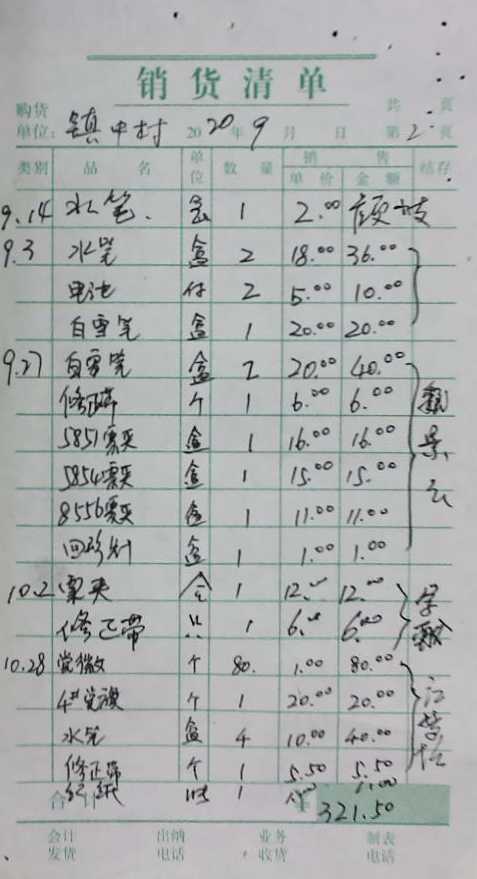 销货清单
购货 共 页
单位: 镇中村 2020年9月 日 第2页
类别 品名 单位 数量 销售 结存
单价 金额
9.14 水笔 盒 1 2.00
9.3 水笔 盒 2 18.00 36.00
电池 付 2 5.00 10.00
白雪笔 盒 1 20.00 20.00
9.27 白雪笔 盒 2 20.00 40.00
修正带 个 1 6.00 6.00
5851票夹 盒 1 16.00 16.00
5854票夹 盒 1 15.00 15.00
8556票夹 盒 1 11.00 11.00
回形针 盒 1 1.00 1.00
10.2 票夹 1 12.00 12.00
修正带 1 6.00 6.00
10.28 党徽 个 80. 1.00 80.00
4#党旗 个 1 20.00 20.00
水笔 盒 4 10.00 40.00
修正带 个 1 5.50 5.50
合计 1 ¥ 321.50
会计 出纳 业务 制表
发货 电话 收货 电话